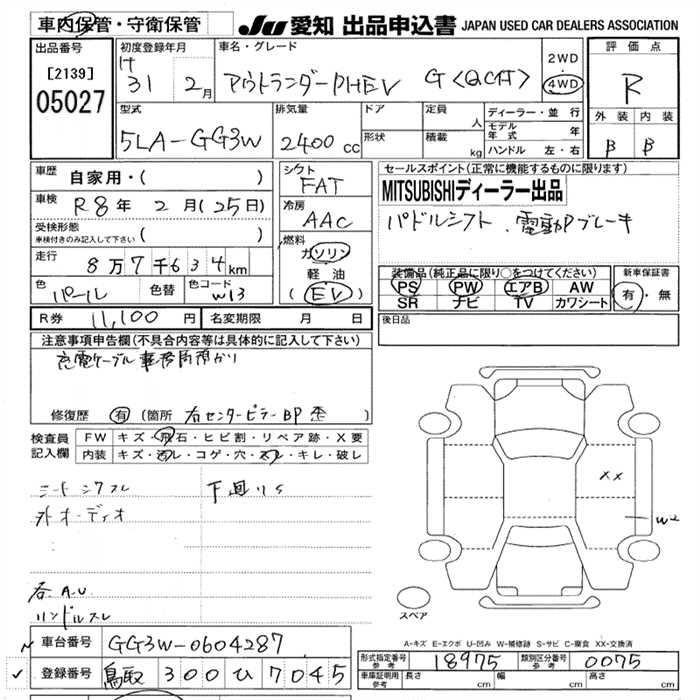 車内保管・守衛保管
JU 愛知 出品申込書 JAPAN USED CAR DEALERS ASSOCIATION
出品番号
[2139]
05027
初度登録年月
31 2月
車名・グレード
アウトランダーPHEV G<QC付>
2WD
・
4WD
評価点
R
外装 内装
B B
型式
5LA-GG3W
排気量
2400 cc
ドア
形状
定員
人
積載
kg
ディーラー・並行
モデル年式 年
ハンドル 左・右
車歴 自家用・( )
車検 R8年 2月(25日)
受検形態
※検付きのみ記入して下さい ( )
走行 8万7千634km
色 パール 色替 色コード W13
シフト
FAT
冷房
AAC
燃料
ガソリン
軽油
(EV)
セールスポイント(正常に機能するものに限ります)
MITSUBISHIディーラー出品
パドルシフト、電動Pブレーキ
装備品(純正品に限り○をつけてください)
PS PW エアB AW
SR ナビ TV カワシート
新車保証書
有・無
R券 11,100円 名変期限 月 日
後日品
注意事項申告欄(不具合内容等は具体的に記入して下さい)
充電ケーブル事務局預かり
修復歴 有 (箇所 右センターピラーBP歪 )
検査員記入欄
FW キズ・飛石・ヒビ割・リペア跡・X要
内装 キズ・汚レ・コゲ・穴・スレ・キレ・破レ
シートシワスレ
下回リS
外オーディオ
各A.U
ハンドルスレ
XX
W2
スペア
A-キズ E-エクボ U-凹み W-補修跡 S-サビ C-腐食 XX-交換済
車台番号 GG3W-0604287
登録番号 鳥取 300 ひ 7045
形式指定番号 参考 18975 類別区分番号 参考 0075
車庫証明用 参考 長さ cm 幅 cm 高さ cm